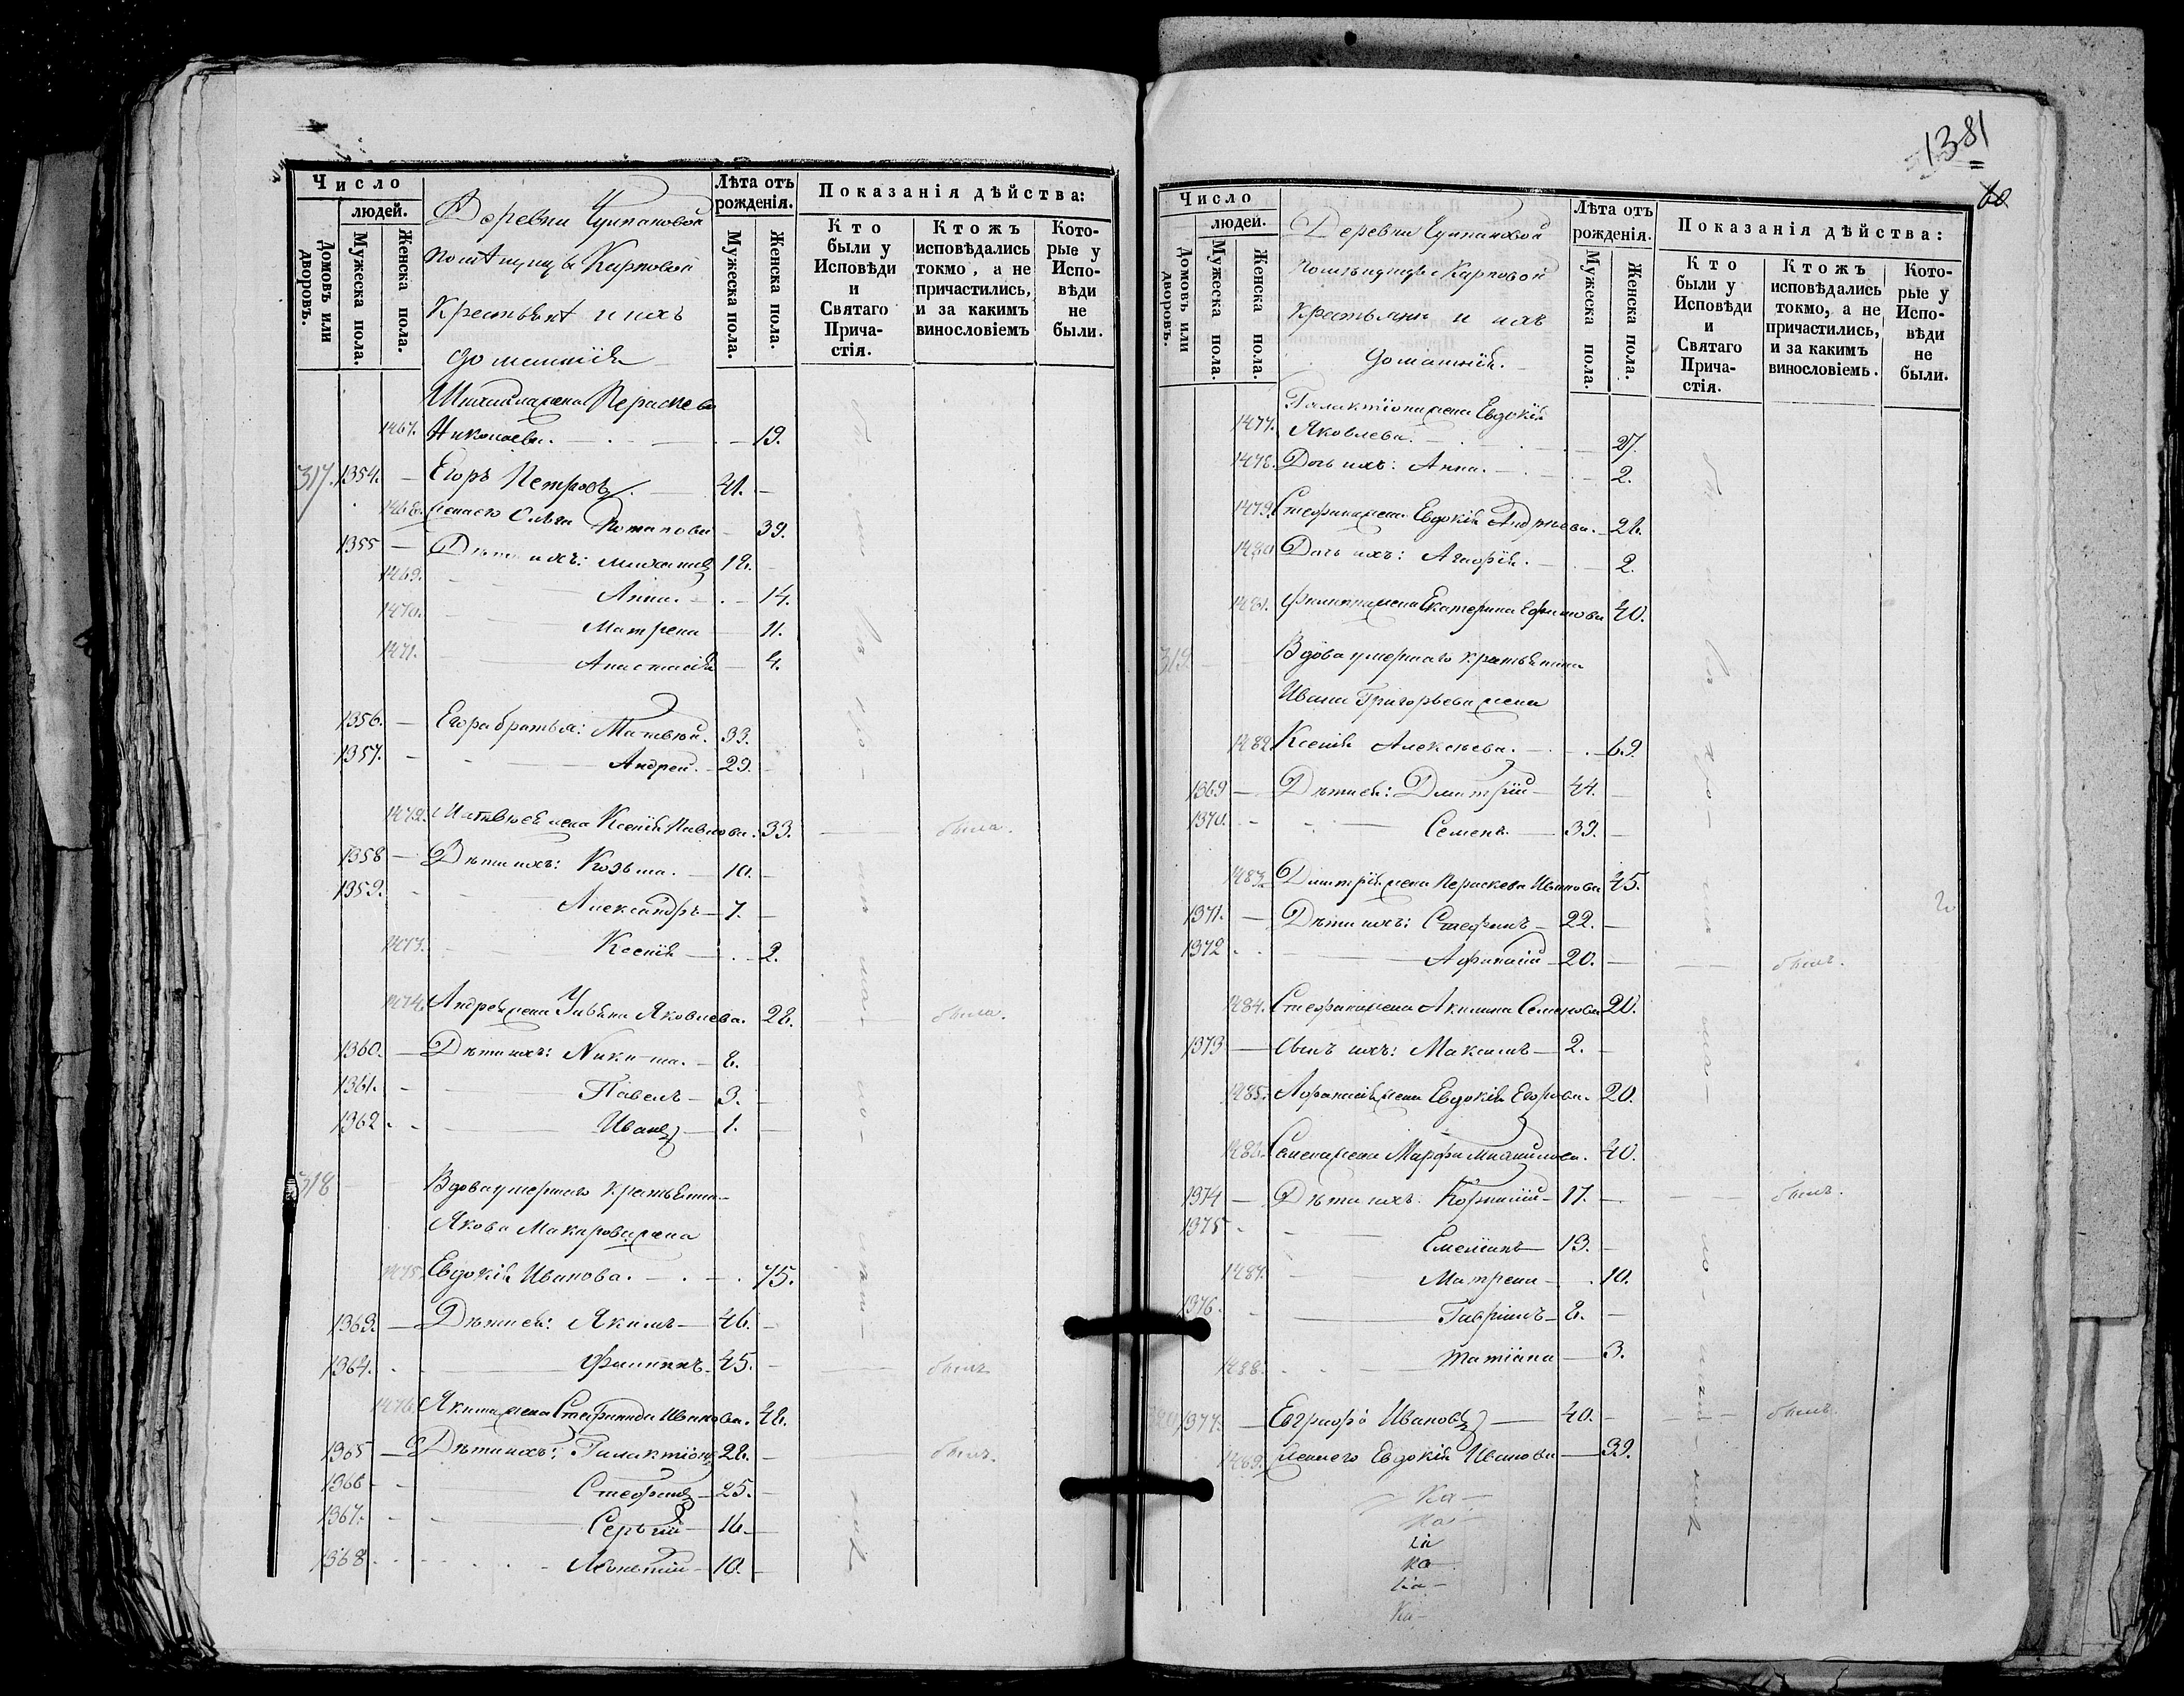 Число
людей.
Домовъ или дворовъ.
Мужеска пола.
Женска пола.
Деревни Чупановой
помѣщицы Карповой
Крестьянѣ и ихъ
домашнія
Лѣта отъ рожденія.
Мужеска пола.
Женска пола.
Показанія дѣйства:
Кто были у Исповѣди и Святаго Причастія.
Ктожъ исповѣдались токмо, а не причастились, и за какимъ винословіемъ
Которые у Исповѣди не были.
Михаила жена Параскева
1467. Николаева. 19.
317. 1354. Егоръ Петровъ. 41.
1468. жена его Ольга Потапова 39.
1355 Дѣти ихъ: Михаилъ 18.
1469. Анна. 14.
1470. Матрена 11.
1471. Анастасія 4.
1356. Егора братья: Матвѣй. 33.
1357. Андрей. 29.
1472. Матвѣя жена Ксенія Павлова. 33. была.
1358 Дѣти ихъ: Козьма. 10.
1359. Александръ 7.
1473. Ксенія 2.
1474. Андрея жена Ульяна Яковлева. 28. была.
1360. Дѣти ихъ: Никита. 8.
1361. Павелъ 3.
1362 Иванъ 1.
318 Вдова умершаго крестьянина
Якова Макарова жена
1475. Евдокія Иванова. 75.
1363. Дѣти ея: Якимъ 46.
1364. Филиппъ. 45. былъ
1476. Якима жена Степанида Иванова. 48.
1365 Дѣти ихъ: Галактіонъ 28. былъ.
1366 Стефанъ 25.
1367. Сергій 16.
1368 Леонтій 10.
1381
60
Число
людей.
Домовъ или дворовъ.
Мужеска пола.
Женска пола.
Деревни Чупановой
помѣщицы Карповой
Крестьяни и ихъ
домашнія.
Лѣта отъ рожденія.
Мужеска пола.
Женска пола.
Показанія дѣйства:
Кто были у Исповѣди и Святаго Причастія.
Ктожъ исповѣдались токмо, а не причастились, и за какимъ винословіемъ.
Которые у Исповѣди не были.
Галактіона жена Евдокія
1477. Яковлева. 27.
1478. Дочь ихъ: Анна. 2.
1479. Стефана жена Евдокія Андреева. 28.
1480 Дочь ихъ: 2.
1481. Филиппа жена Екатерина Ефимова 40.
319. Вдова умершаго крестьянина
Ивана Григорьева жена
1482 Ксенія Алексѣева. 69.
1369 Дѣти ея: Дмитрій 44.
1370. Семенъ 39.
1483. Дмитрія жена Параскева Иванова 45.
1371. Дѣти ихъ: Стефанъ 22.
1372 Афанасій 20. былъ.
1484. Стефана жена Акилина Семенова 20.
1373 Сынъ ихъ: Максимъ 2.
1485. Афанасія жена Евдокія Егорова. 20.
1486. Семена жена Марфа Михайлова. 40.
1374 Дѣти ихъ: Корнилій 17. былъ.
1375 Емеліанъ 13.
1487. Матрена 10.
1376. Гавріилъ 8.
1488. Татіана 3.
320 1377. Евграфъ Ивановъ 40. былъ.
1489. жена его Евдокія Иванова 39.
Ка
ка
ка
ка
ка
Ка